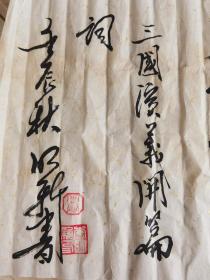 三國演義開篇
詞
壬辰秋 明新書